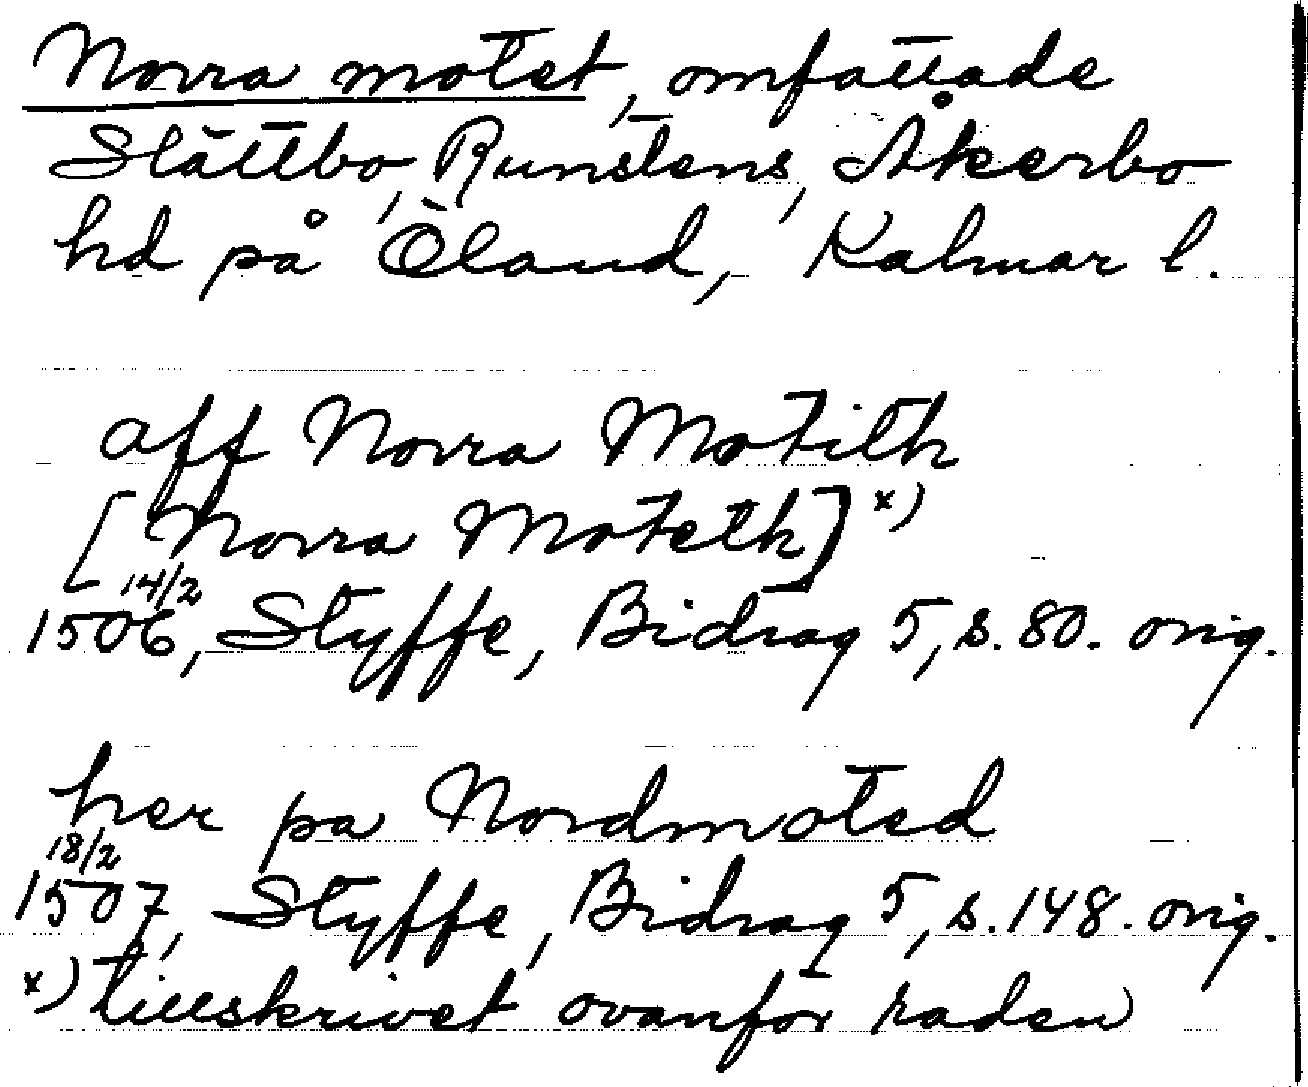 Norra motet, omfattade
Slättbo, Runstens, Åkerbo
hd på Öland, Kalmar l.
aff Norra Motith
[Norra Moteth] x)
14/2
1506, Styffe, Bidrag 5, s. 80. orig.
her pa Nordmoted
18/2
1507, Styffe, Bidrag 5, s. 148. orig.
x) tillskrivet ovanför raden